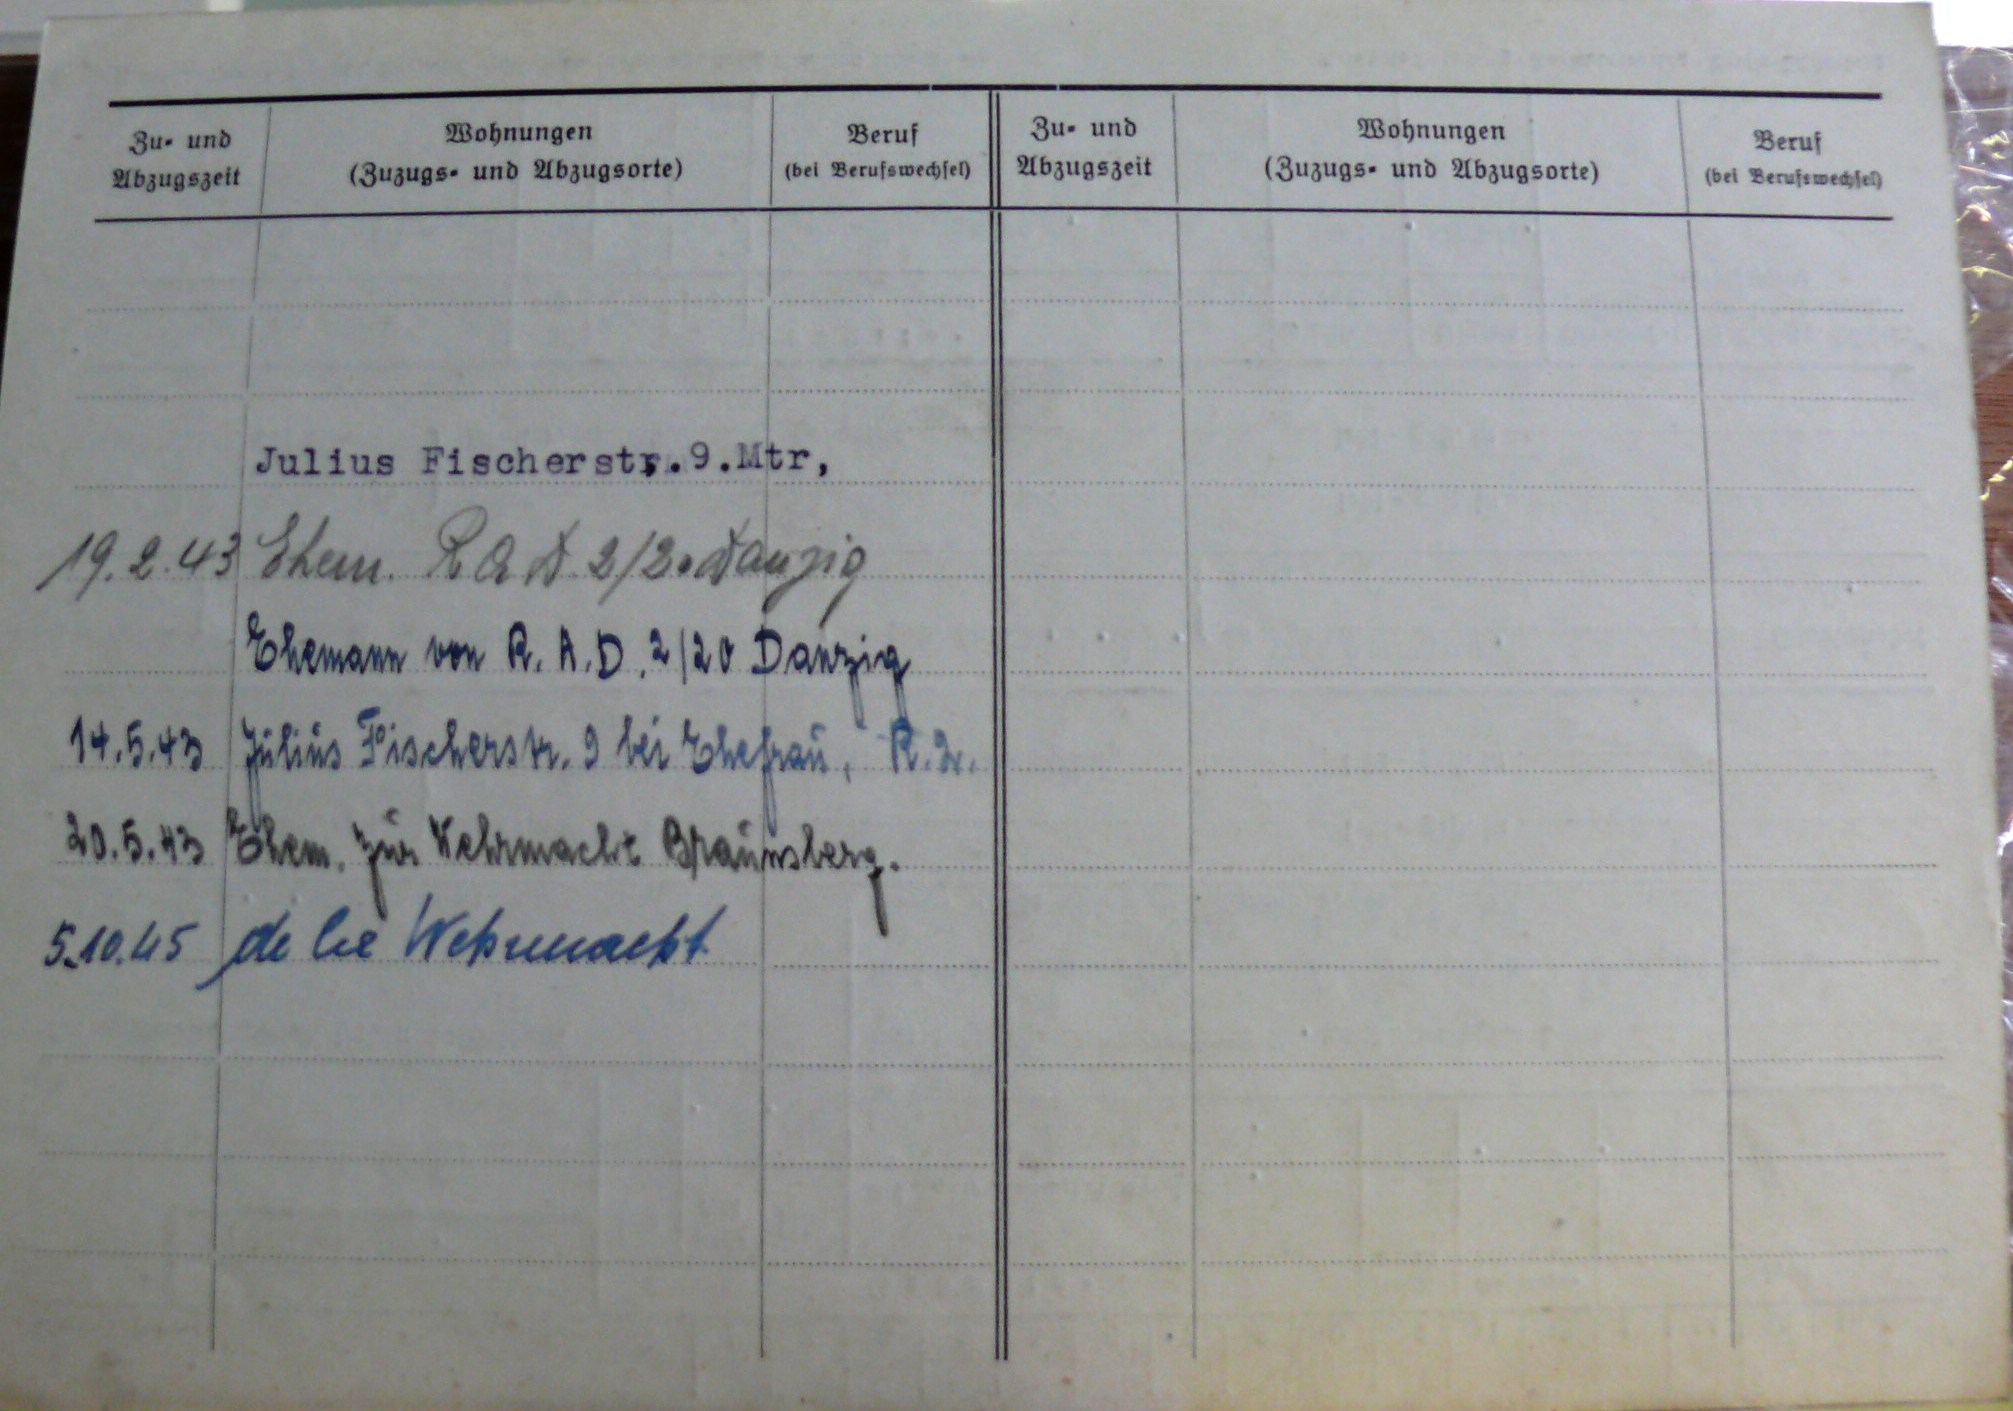 Zu- und Abzugszeit
Wohnungen
(Zuzugs- und Abzugsorte)
Beruf
(bei Berufswechsel)
Zu- und Abzugszeit
Wohnungen
(Zuzugs- und Abzugsorte)
Beruf
(bei Berufswechsel)
Julius Fischerstr.9.Mtr,
19.2.43 Ehem. R A D. 2/20 Danzig
Ehemann von R. A. D. 2/20 Danzig
14.5.43 Julius Fischerstr. 9 bei Ehefrau,
20.5.43 Ehem. zur Wehrmacht Braunsberg.
5.10.45 Wehrmacht